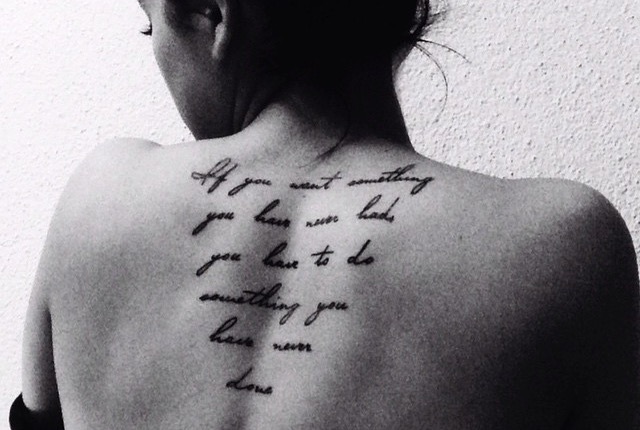 If you want something
you have never had,
you have to do
something you
have never
done